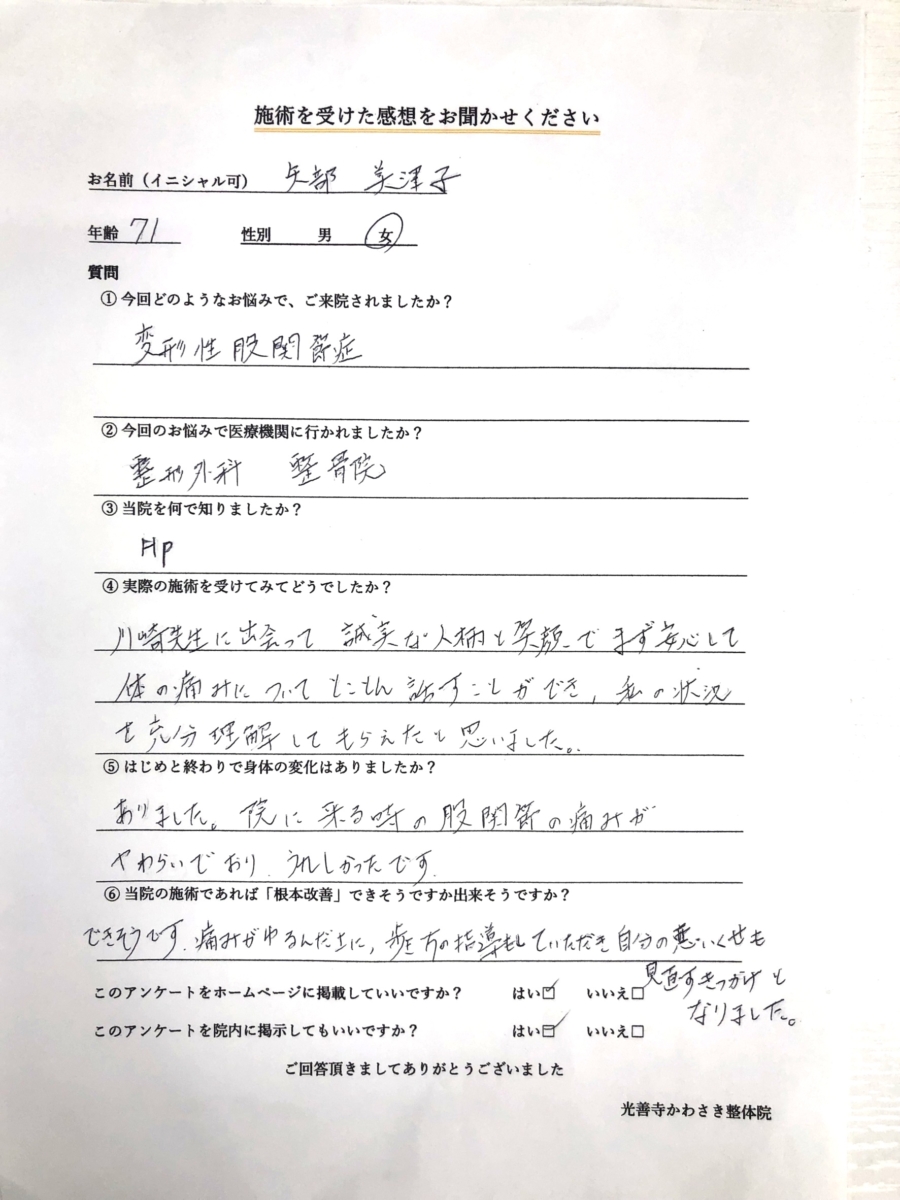 施術を受けた感想をお聞かせください
お名前（イニシャル可） 矢部 美津子
年齢 71 性別 男 女
質問
①今回どのようなお悩みで、ご来院されましたか？
変形性股関節症
②今回のお悩みで医療機関に行かれましたか？
整形外科 整骨院
③当院を何で知りましたか？
Hp
④実際の施術を受けてみてどうでしたか？
川崎先生に出会って 誠実な人柄と笑顔でまず安心して
体の痛みについてとことん話すことができ、私の状況
を充分理解してもらえたと思いました。
⑤はじめと終わりで身体の変化はありましたか？
ありました。院に来る時の股関節の痛みが
やわらいでおり、うれしかったです。
⑥当院の施術であれば「根本改善」できそうですか出来そうですか？
できそうです。痛みがゆるんだ上に、歩き方の指導もしていただき自分の悪いくせも
見直すきっかけと
なりました。
このアンケートをホームページに掲載していいですか？ はい☑ いいえ□
このアンケートを院内に掲示してもいいですか？ はい☑ いいえ□
ご回答頂きましてありがとうございました
光善寺かわさき整体院